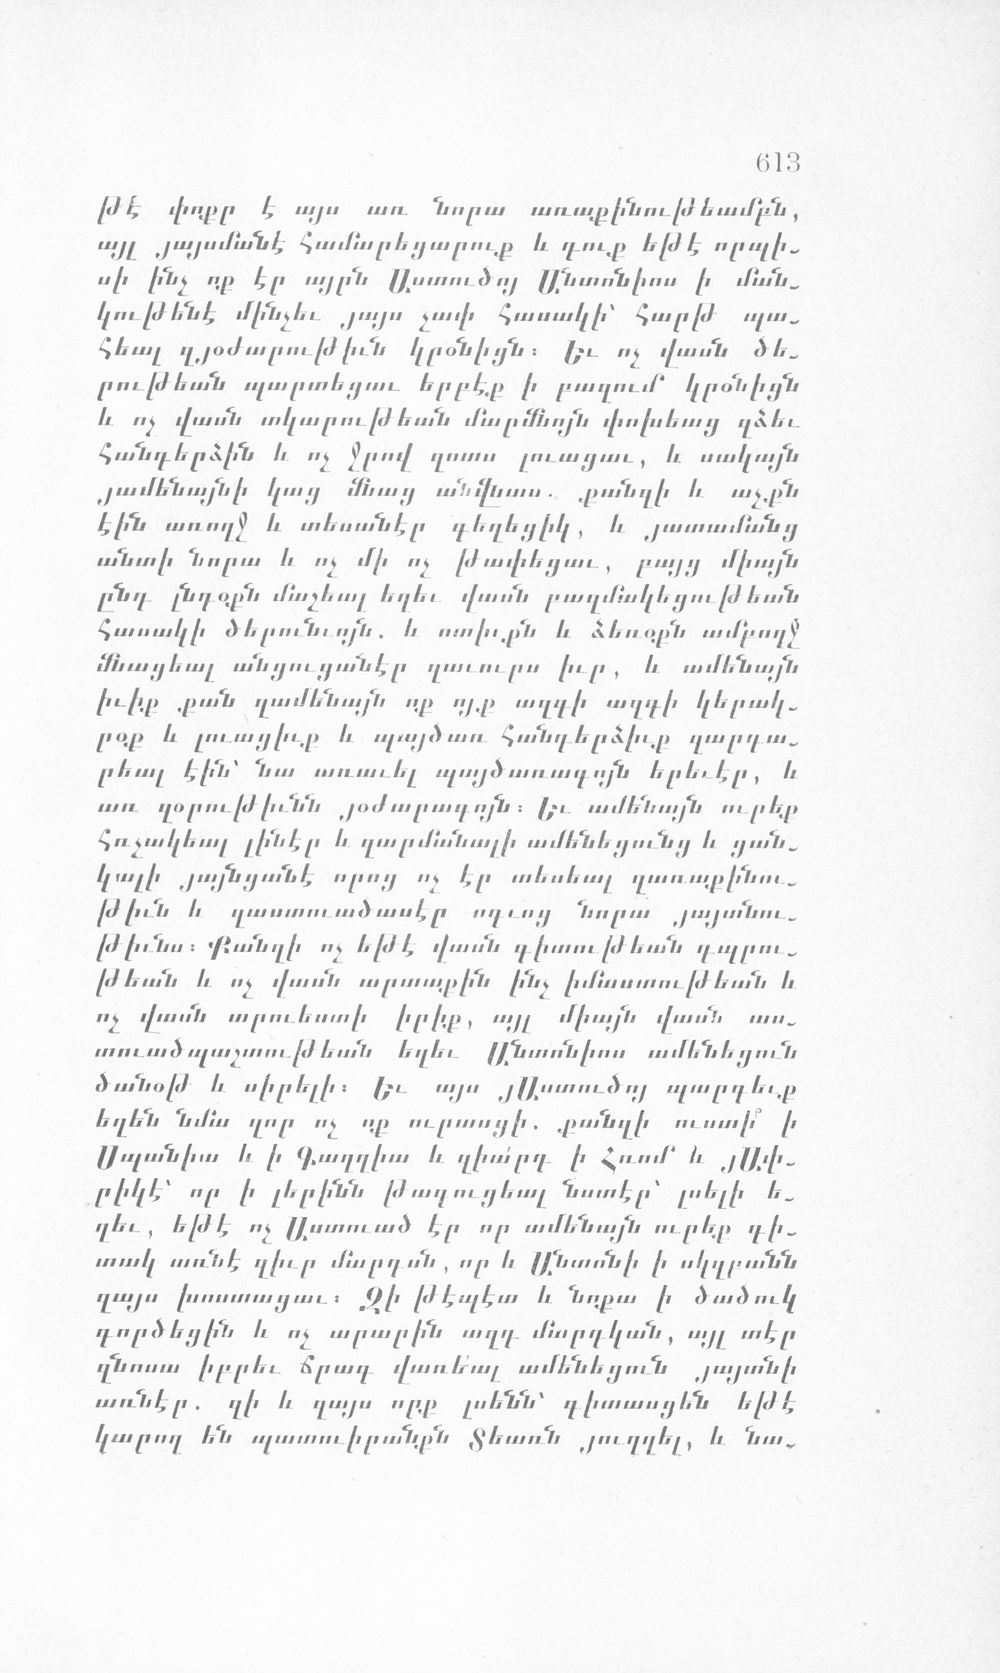 613
թէ փոքր է այս առ նորա առաքինութեամբն,
այլ յայսմանէ համարեցարուք և դուք եթէ որպի-
սի ինչ ոք էր այրն Աստուծոյ Անտոնիոս ի ման-
կութենէ մինչեւ յայս չափ հասակի՝ հարթ պա-
հեալ զյօժարութիւն կրօնիցն։ Եւ ոչ վասն ծե-
րութեան պարտեցաւ երբէք ի բազում կրօնիցն
և ոչ վասն տկարութեան մարմնոյն փոխեաց զձեւ
հանդերձին և ոչ ջրով զոտս լուացաւ, և սակայն
յամենայնի կաց մնաց անվնաս. քանզի և աչքն
էին առողջ և տեսանէր գեղեցիկ, և յատամանց
անտի նորա և ոչ մի ոչ թափեցաւ, բայց միայն
ընդ լնդօքն մաշեալ եղեւ վասն բազմակեցութեան
հասակի ծերունւոյն. և ոտիւքն և ձեռօքն ամբողջ
մնացեալ անցուցանէր զաւուրս իւր, և ամենայն
իւիք քան զամենայն ոք ոյք ազգի ազգի կերակ-
րօք և լուացիւք և պայծառ հանդերձիւք զարդա-
րեալ էին՝ նա առաւել պայծառագոյն երեւէր, և
առ զօրութիւնն յօժարագոյն։ Եւ ամենայն ուրեք
հռչակեալ լինէր և զարմանալի ամենեցունց և ցան-
կալի յայնցանէ որոց ոչ էր տեսեալ զառաքինու-
թիւն և զաստուածասէր ոգւոց նորա յայտնու-
թիւնս։ Քանզի ոչ եթէ վասն գիտութեան դպրու-
թեան և ոչ վասն արտաքին ինչ իմաստութեան և
ոչ վասն արուեստի իրիք, այլ միայն վասն աս-
տուածպաշտութեան եղեւ Անտոնիոս ամենեցուն
ծանօթ և սիրելի։ Եւ այս յԱստուծոյ պարգեւք
եղեն նմա զոր ոչ ոք ուրասցի. քանզի ուստի՞ ի
Սպանիա և ի Գաղղիա և զիա՛րդ ի Հռոմ և յԱփ-
րիկէ՝ որ ի լերինն թագուցեալ նստէր՝ լսելի ե-
ղեւ, եթէ ոչ Աստուած էր որ ամենայն ուրեք գի-
տակ առնէ զիւր մարդսն, որ և Անտոնի ի սկզբանն
զայս խոստացաւ։ Զի թէպէտ և նոքա ի ծածուկ
գործեցին և ոչ արարին ազդ մարդկան, այլ տէր
զնոսա իբրեւ ճրագ վառեալ ամենեցուն յայտնի
առնէր. զի և զայս որք լսենն՝ գիտասցեն եթէ
կարող են պատուիրանքն Տեառն յուղղել, և նա-